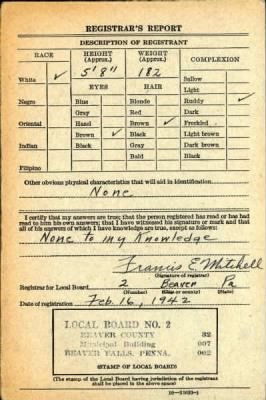 REGISTRAR'S REPORT
DESCRIPTION OF REGISTRANT
RACE HEIGHT (Approx.) WEIGHT (Approx.) COMPLEXION
White ✓ 5' 8" 182 Sallow
EYES HAIR Light
Negro Blue Blonde Ruddy ✓
Gray Red Dark
Oriental Hazel Brown ✓ Freckled
Brown ✓ Black Light brown
Indian Black Gray Dark brown
Bald Black
Filipino
Other obvious physical characteristics that will aid in identification
None
I certify that my answers are true; that the person registered has read or has had
read to him his own answers; that I have witnessed his signature or mark and that
all of his answers of which I have knowledge are true, except as follows:
None to my Knowledge
Francis E. Mitchell
(Signature of registrar)
Registrar for Local Board 2 Beaver Pa
(Number) (City or county) (State)
Date of registration Feb. 16, 1942
LOCAL BOARD NO. 2
BEAVER COUNTY 32
Municipal Building 007
BEAVER FALLS, PENNA. 002
STAMP OF LOCAL BOARD
(The stamp of the Local Board having jurisdiction of the registrant
shall be placed in the above space)